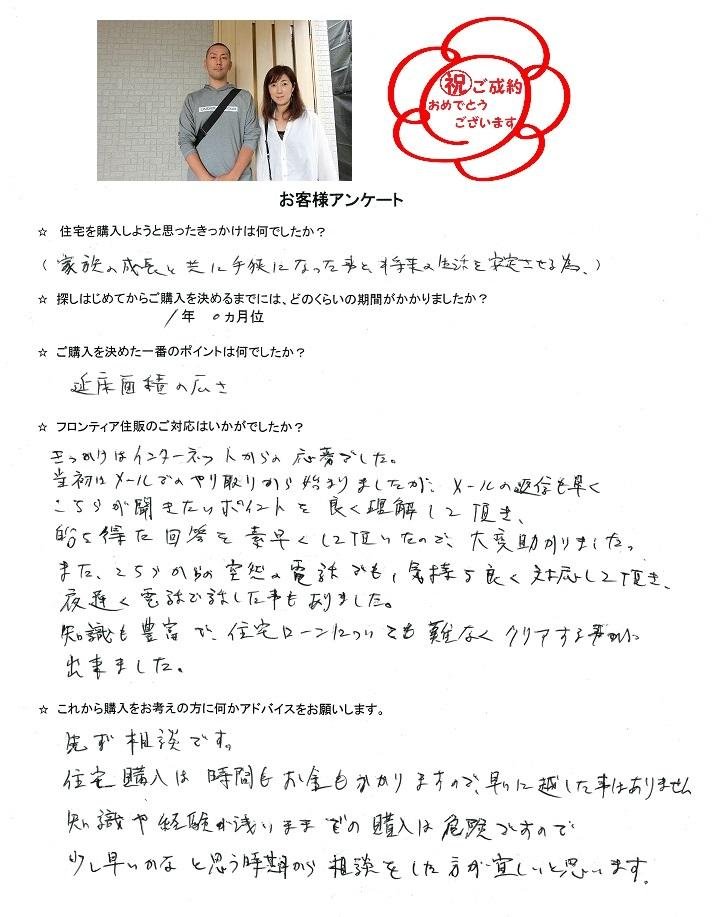 祝ご成約
おめでとう
ございます
お客様アンケート
☆ 住宅を購入しようと思ったきっかけは何でしたか？
（家族の成長と共に手狭になった事と、将来の生活を安定させる為。）
☆ 探しはじめてからご購入を決めるまでには、どのくらいの期間がかかりましたか？
1年 0ヵ月位
☆ ご購入を決めた一番のポイントは何でしたか？
延床面積の広さ
☆ フロンティア住販のご対応はいかがでしたか？
きっかけはインターネットからの応募でした。
当初はメールでのやり取りから始まりましたが、メールの返信も早く
こちらが聞きたいポイントを良く理解して頂き、
的を得た回答を素早くして頂いたので、大変助かりました。
また、こちらからの突然の電話でも、気持ち良く対応して頂き、
夜遅く電話で話した事もありました。
知識も豊富で、住宅ローンについても難なくクリアする事が
出来ました。
☆ これから購入をお考えの方に何かアドバイスをお願いします。
先ず相談です。
住宅購入は時間もお金もかかりますので、早いに越した事はありません
知識や経験が浅いままでの購入は危険ですので
少し早いかなと思う時期から相談をした方が宜しいと思います。